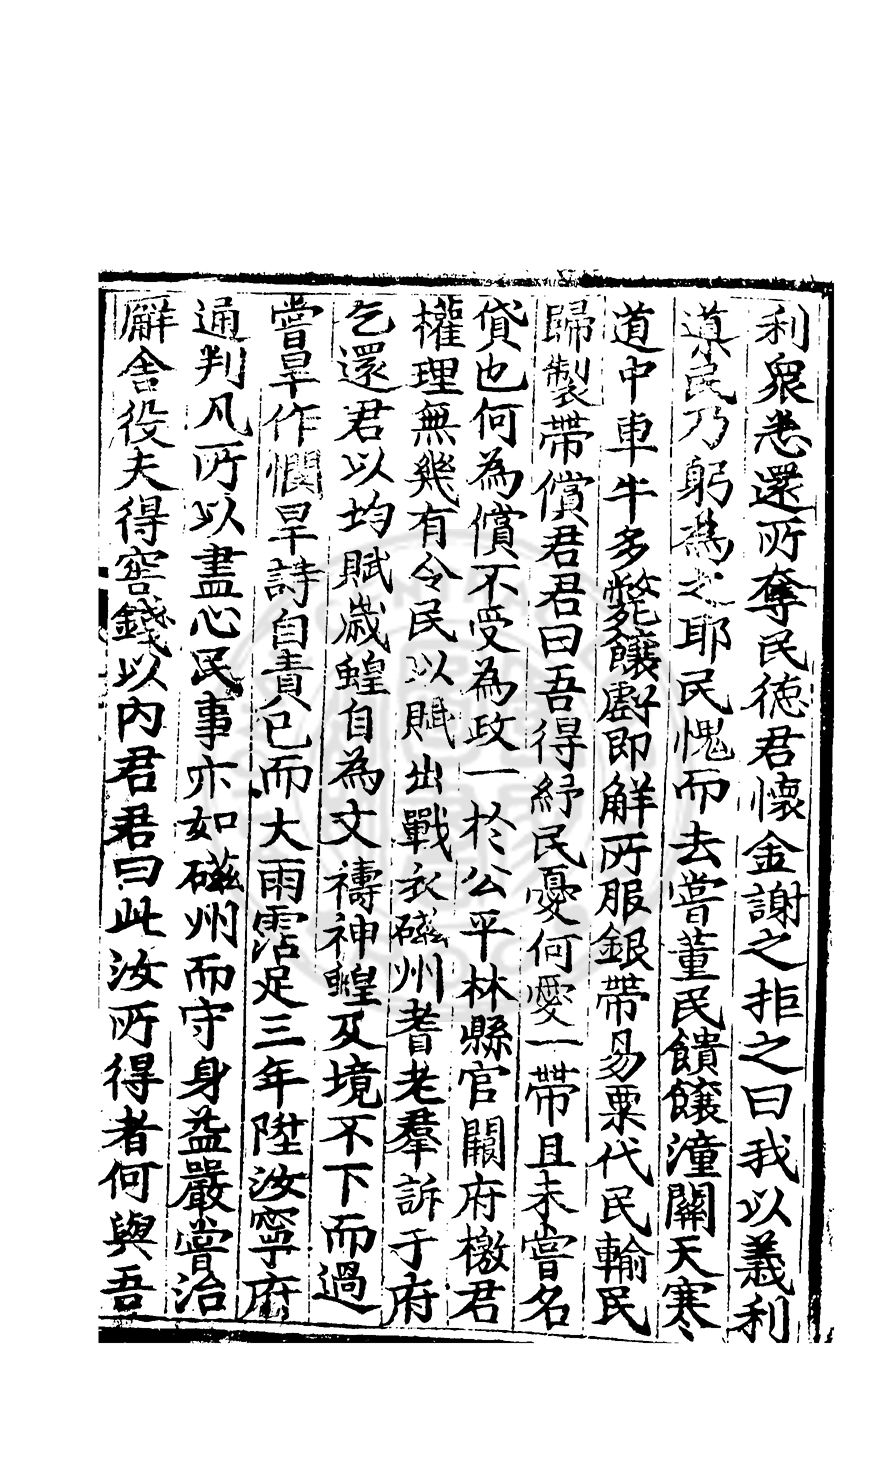 利衆恙還所奪民德君懷金謝之拒之曰我以義利
眾民乃躬為之耶民愧而去嘗董民饋饟潼關天寒
道中車牛多斃饟虧即解所服銀帶易粟代民輸民
歸製帶償君君曰吾得紓民憂何愛一帶且未嘗名
貸也何為償不受為政一於公平林縣官闕府檄君
權理無幾有令民以賦出戰衣磁州耆老羣訴于府
乞還君以均賦歲蝗自為文禱神蝗及境不下而過
嘗旱作憫旱詩自責已而大雨霑足三年陞汝寧府
通判凡所以盡心民事亦如磁州而守身益嚴嘗治
廨舍役夫得窖錢以內君君曰此汝所得者何與吾